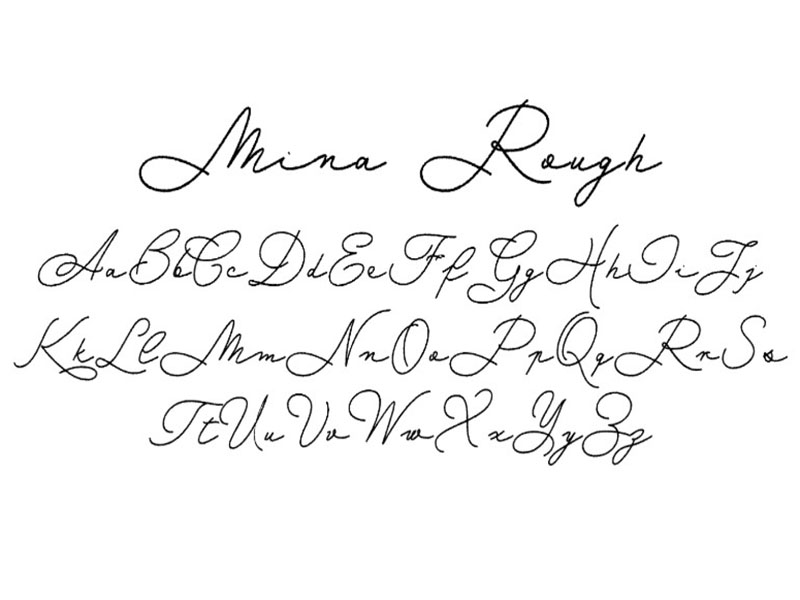 Mina Rough
AaBbCcDdEeFfGgHhIiJj
KkLlMmNnOoPpQqRrSs
TtUuVvWwXxYyZz